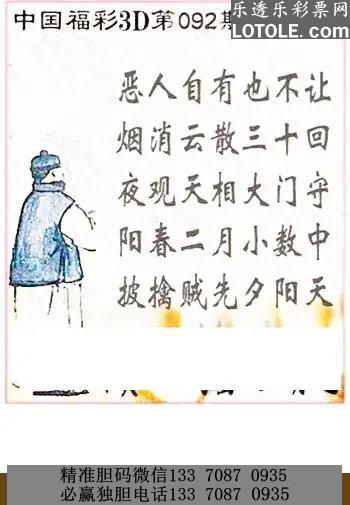 中国福彩3D第092期
乐透乐彩票网
LOTOLE.COM
恶人自有也不让
烟消云散三十回
夜观天相大门守
阳春二月小数中
披擒贼先夕阳天
精准胆码微信133 7087 0935
必赢独胆电话133 7087 0935